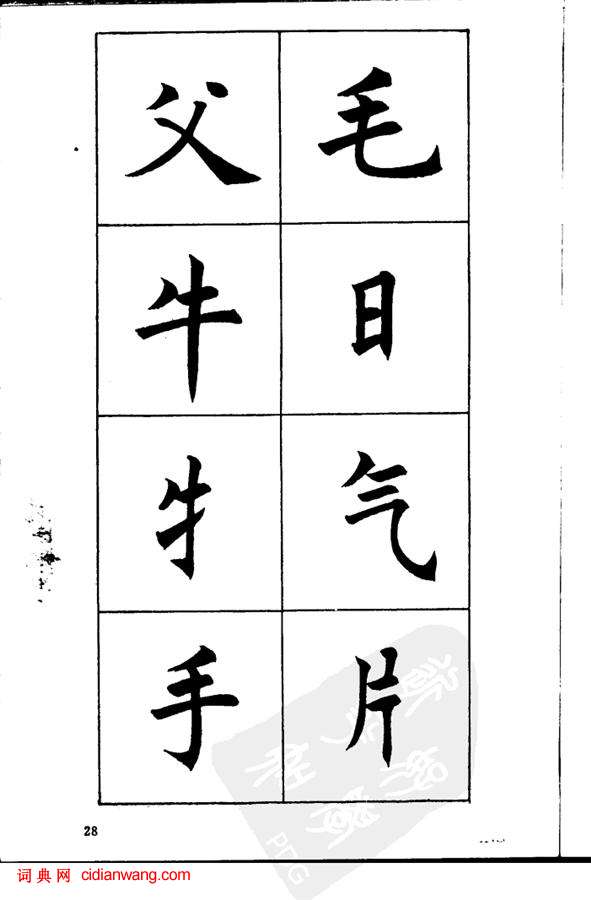 父牛牜手
毛日气片
28
词典网 cidianwang.com